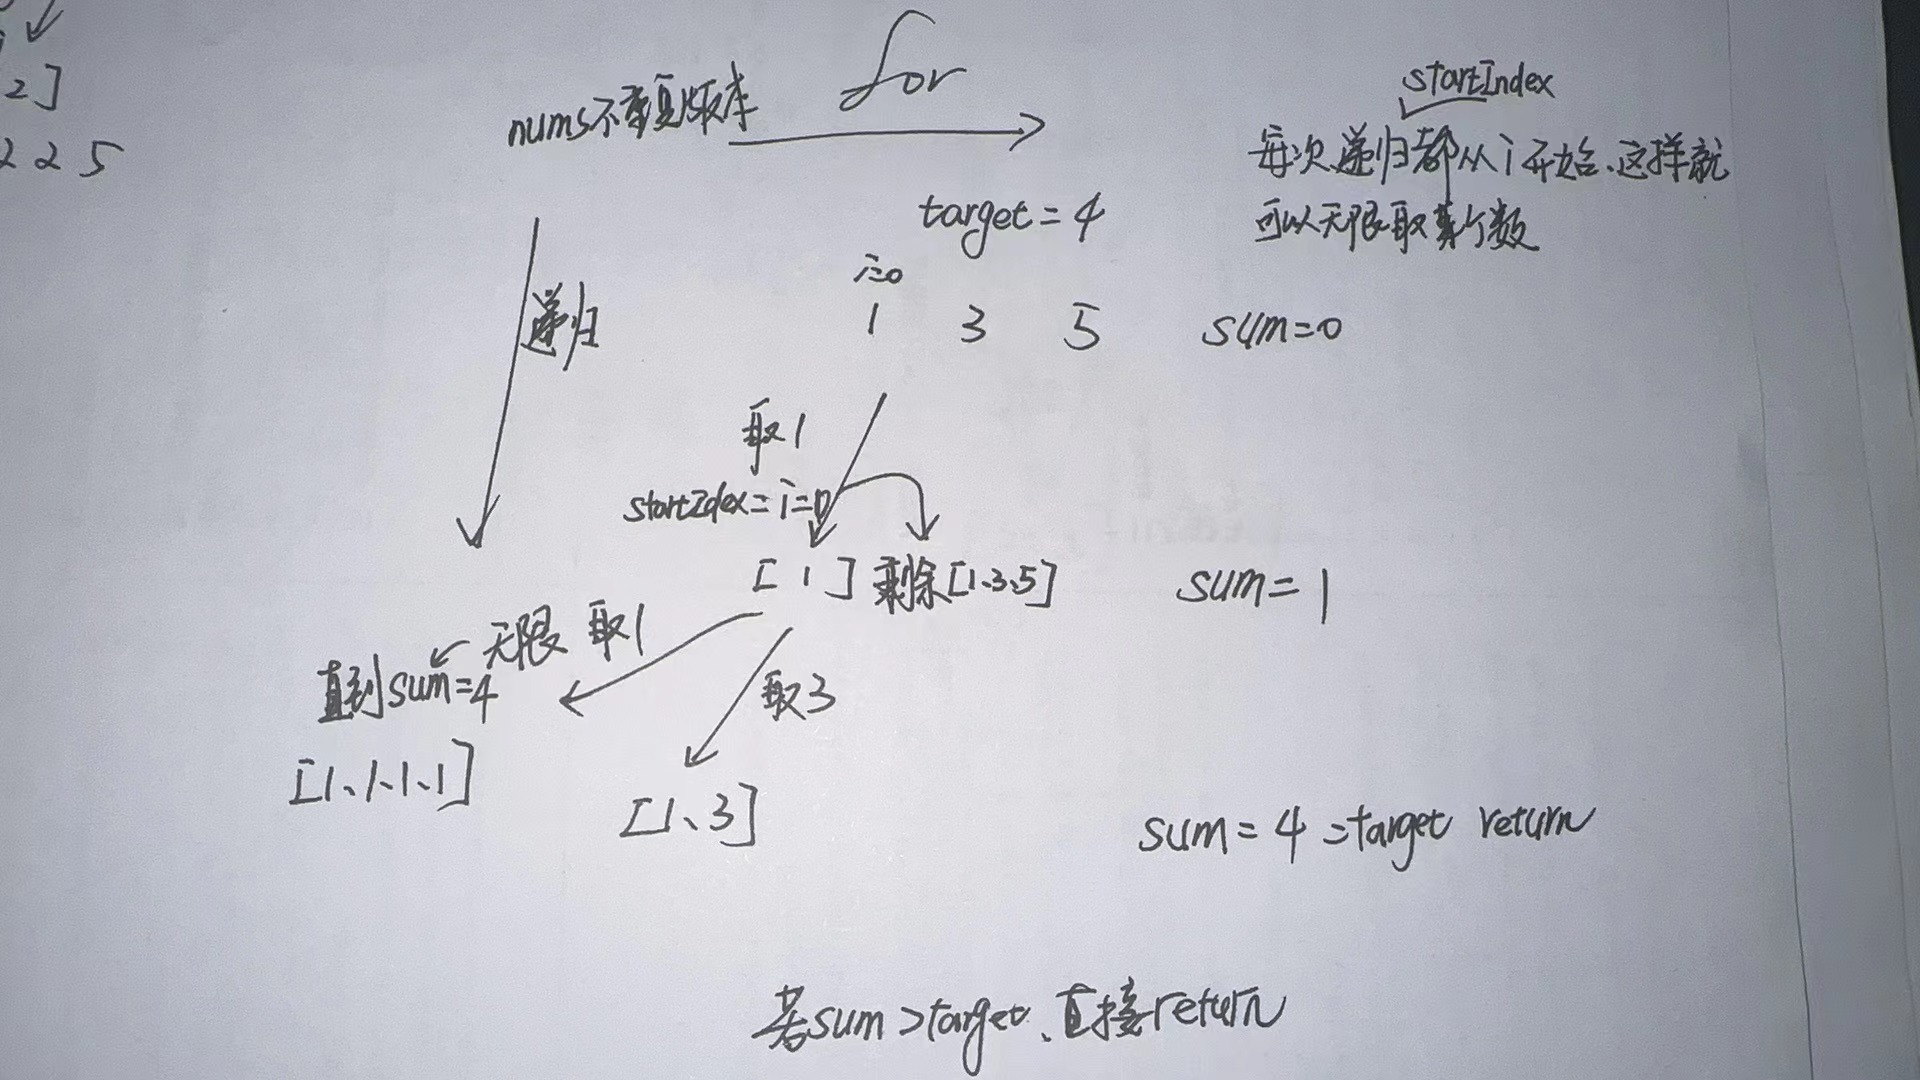 2]
2 2 5
for
nums不重复版本
startIndex
每次递归都从i开始、这样就
可以无限取某个数
target = 4
i=0
递归
1 3 5 sum=0
取1
startIdex = i=0
[ 1 ] 剩余[1、3、5] sum = 1
无限 取1
直到sum=4
取3
[1、1、1、1]
[1、3]
sum = 4 =target return
若sum >target、直接return